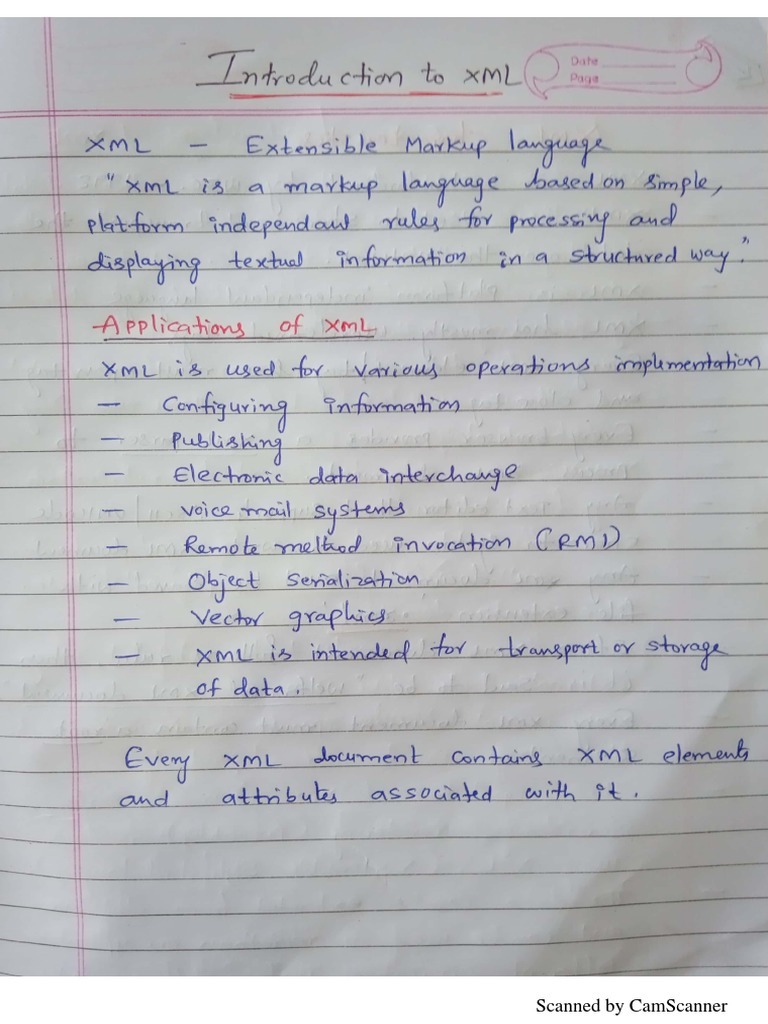 Introduction to XML
Date
Page
XML - Extensible Markup language
"XML is a markup language based on simple,
platform independant rules for processing and
displaying textual information in a structured way."
Applications of XML
XML is used for various operations implementation
- Configuring information
- Publishing
- Electronic data interchange
- Voice mail systems
- Remote method invocation (RMI)
- Object Serialization
- Vector graphics
- XML is intended for transport or storage
of data.
Every XML document contains XML elements
and attributes associated with it.
Scanned by CamScanner